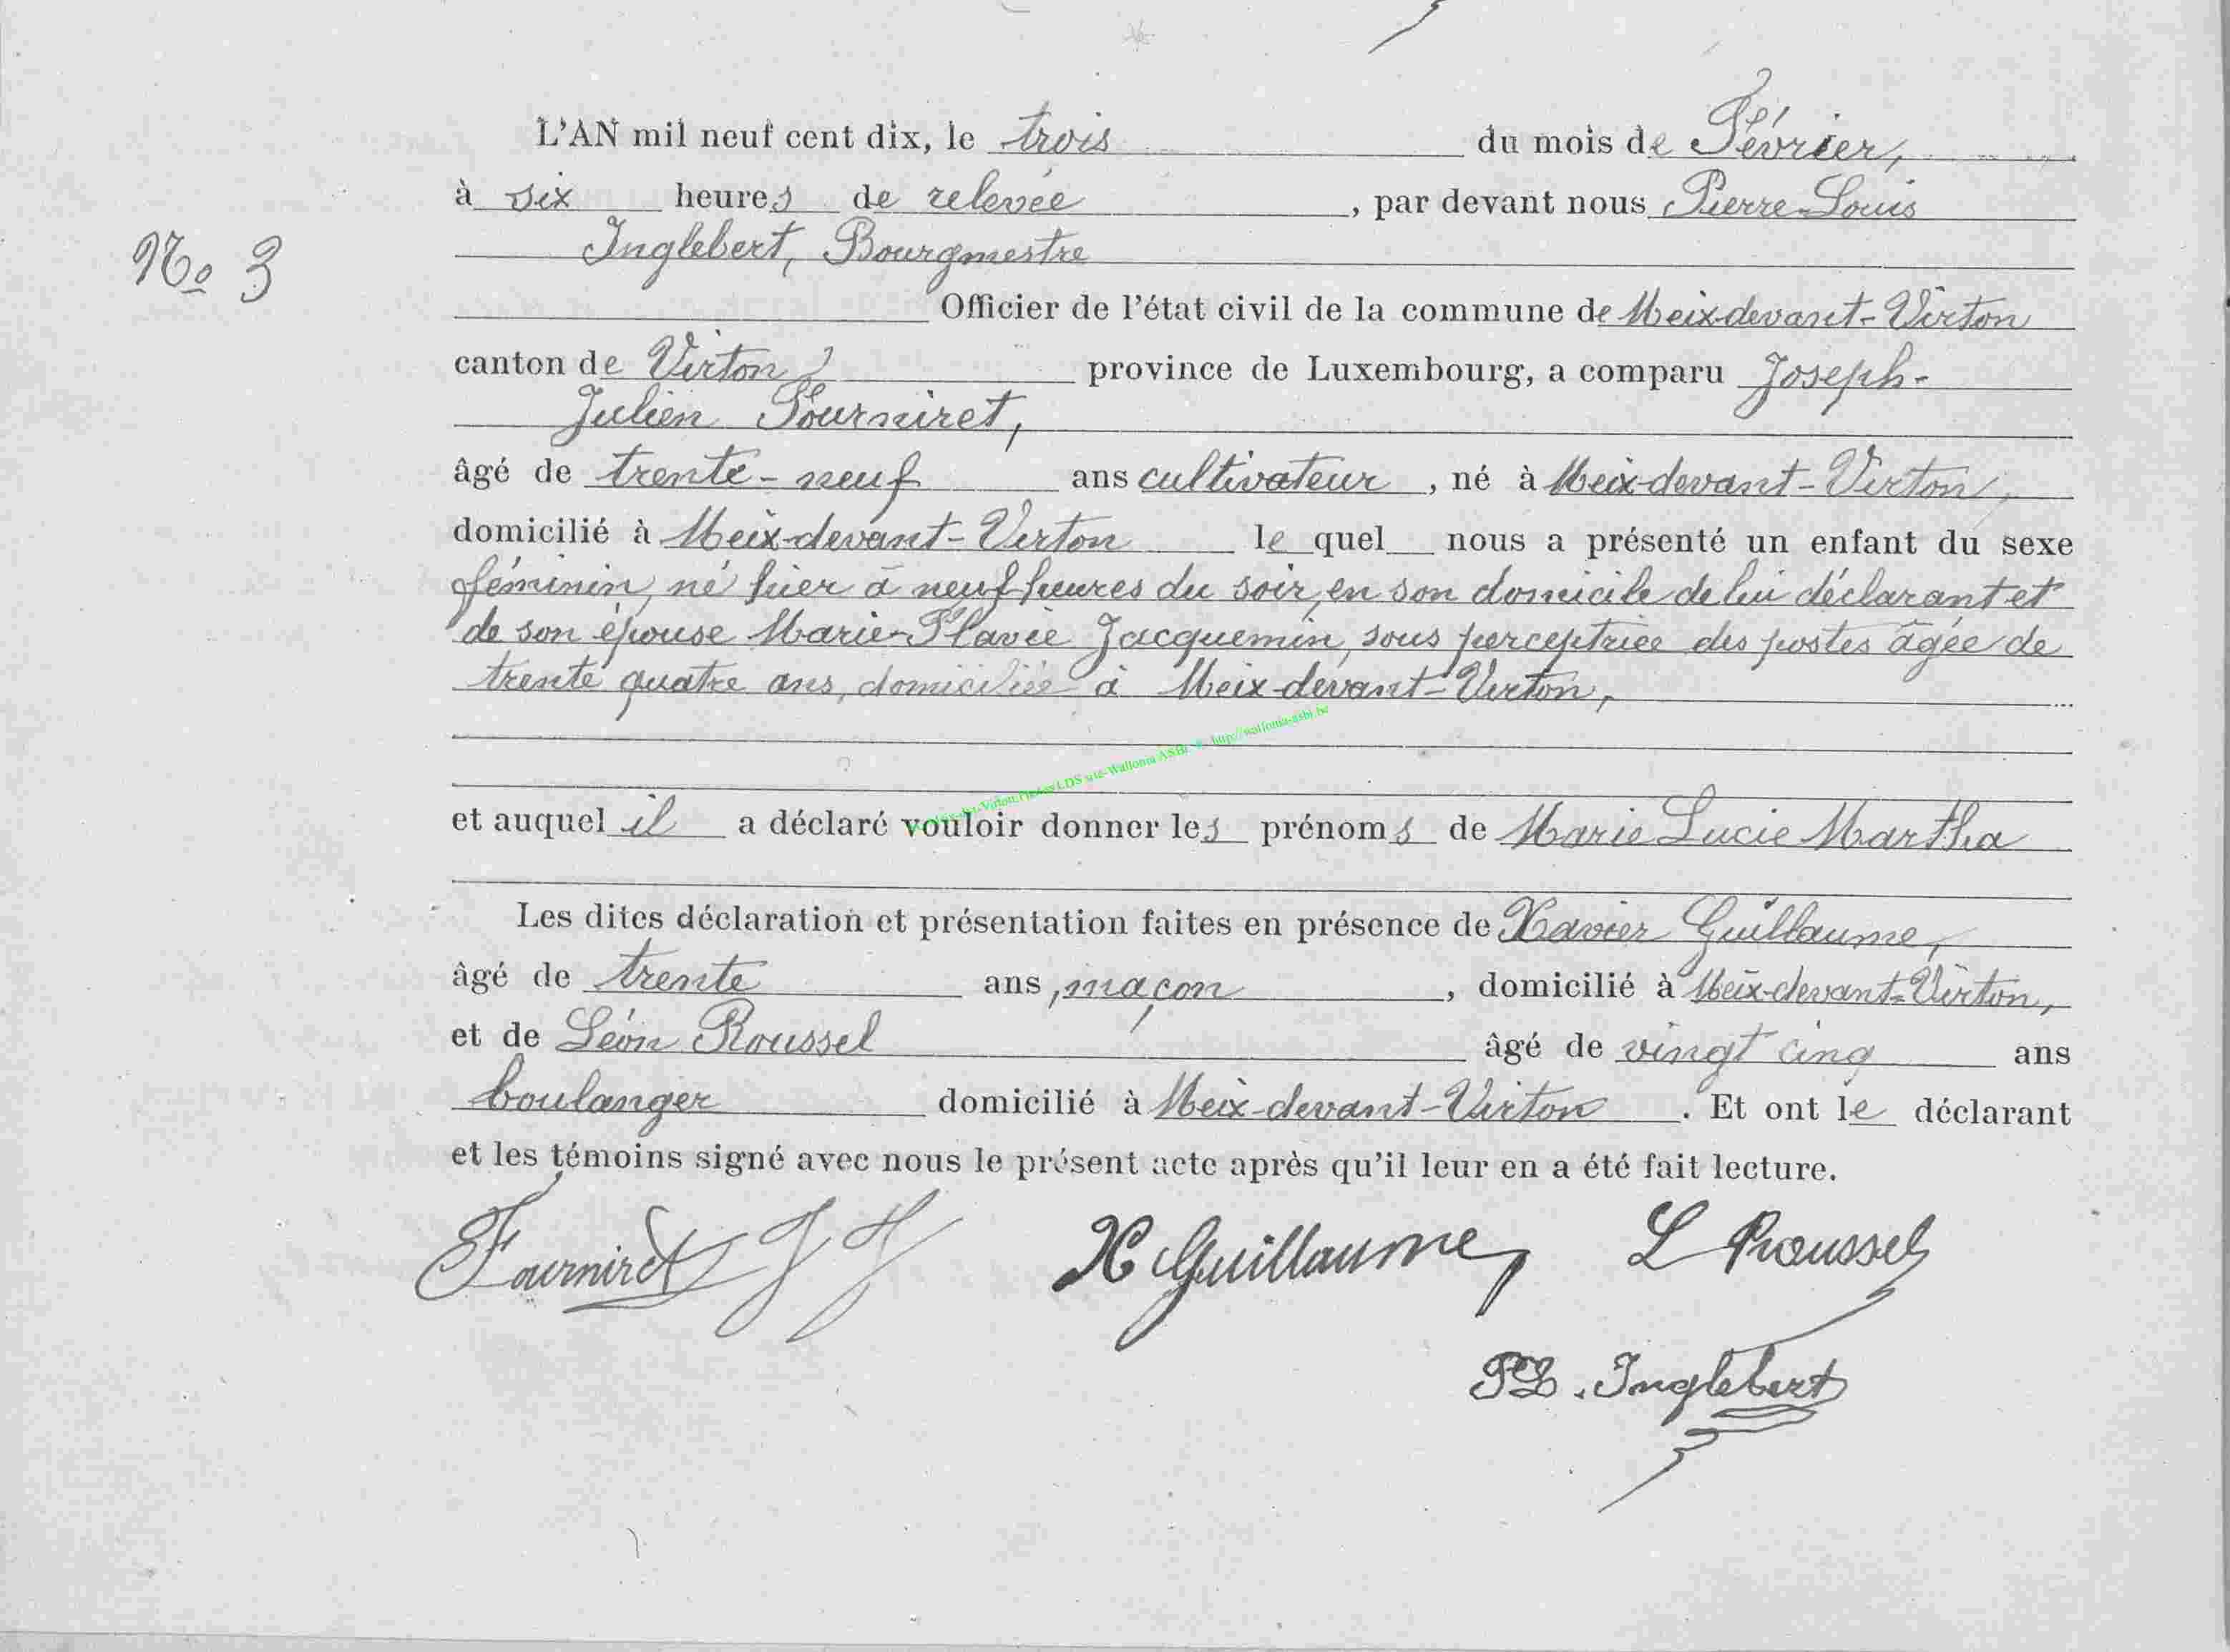 L'AN mil neuf cent dix, le trois du mois de Février,
à six heures de relevée, par devant nous Pierre-Louis
Inglebert, Bourgmestre
N° 3
Officier de l'état civil de la commune de Meix-devant-Virton
canton de Virton, province de Luxembourg, a comparu Joseph-
Julien Fourniret,
âgé de trente-neuf ans cultivateur, né à Meix-devant-Virton,
domicilié à Meix-devant-Virton le quel nous a présenté un enfant du sexe
féminin, né hier à neuf heures du soir, en son domicile de lui déclarant et
de son épouse Marie-Flavie Jacquemin, sous perceptrice des postes âgée de
trente quatre ans, domiciliée à Meix-devant-Virton,
LDS site-Wallonia ASBL http://wallonia-asbl.be
et auquel il a déclaré vouloir donner les prénoms de Marie Lucie Martha
Les dites déclaration et présentation faites en présence de Xavier Guillaume,
âgé de trente ans, maçon, domicilié à Meix-devant-Virton,
et de Léon Roussel âgé de vingt cinq ans
boulanger domicilié à Meix-devant-Virton. Et ont le déclarant
et les témoins signé avec nous le présent acte après qu'il leur en a été fait lecture.
Fourniret JJ X Guillaume L Roussel
PL. Inglebert